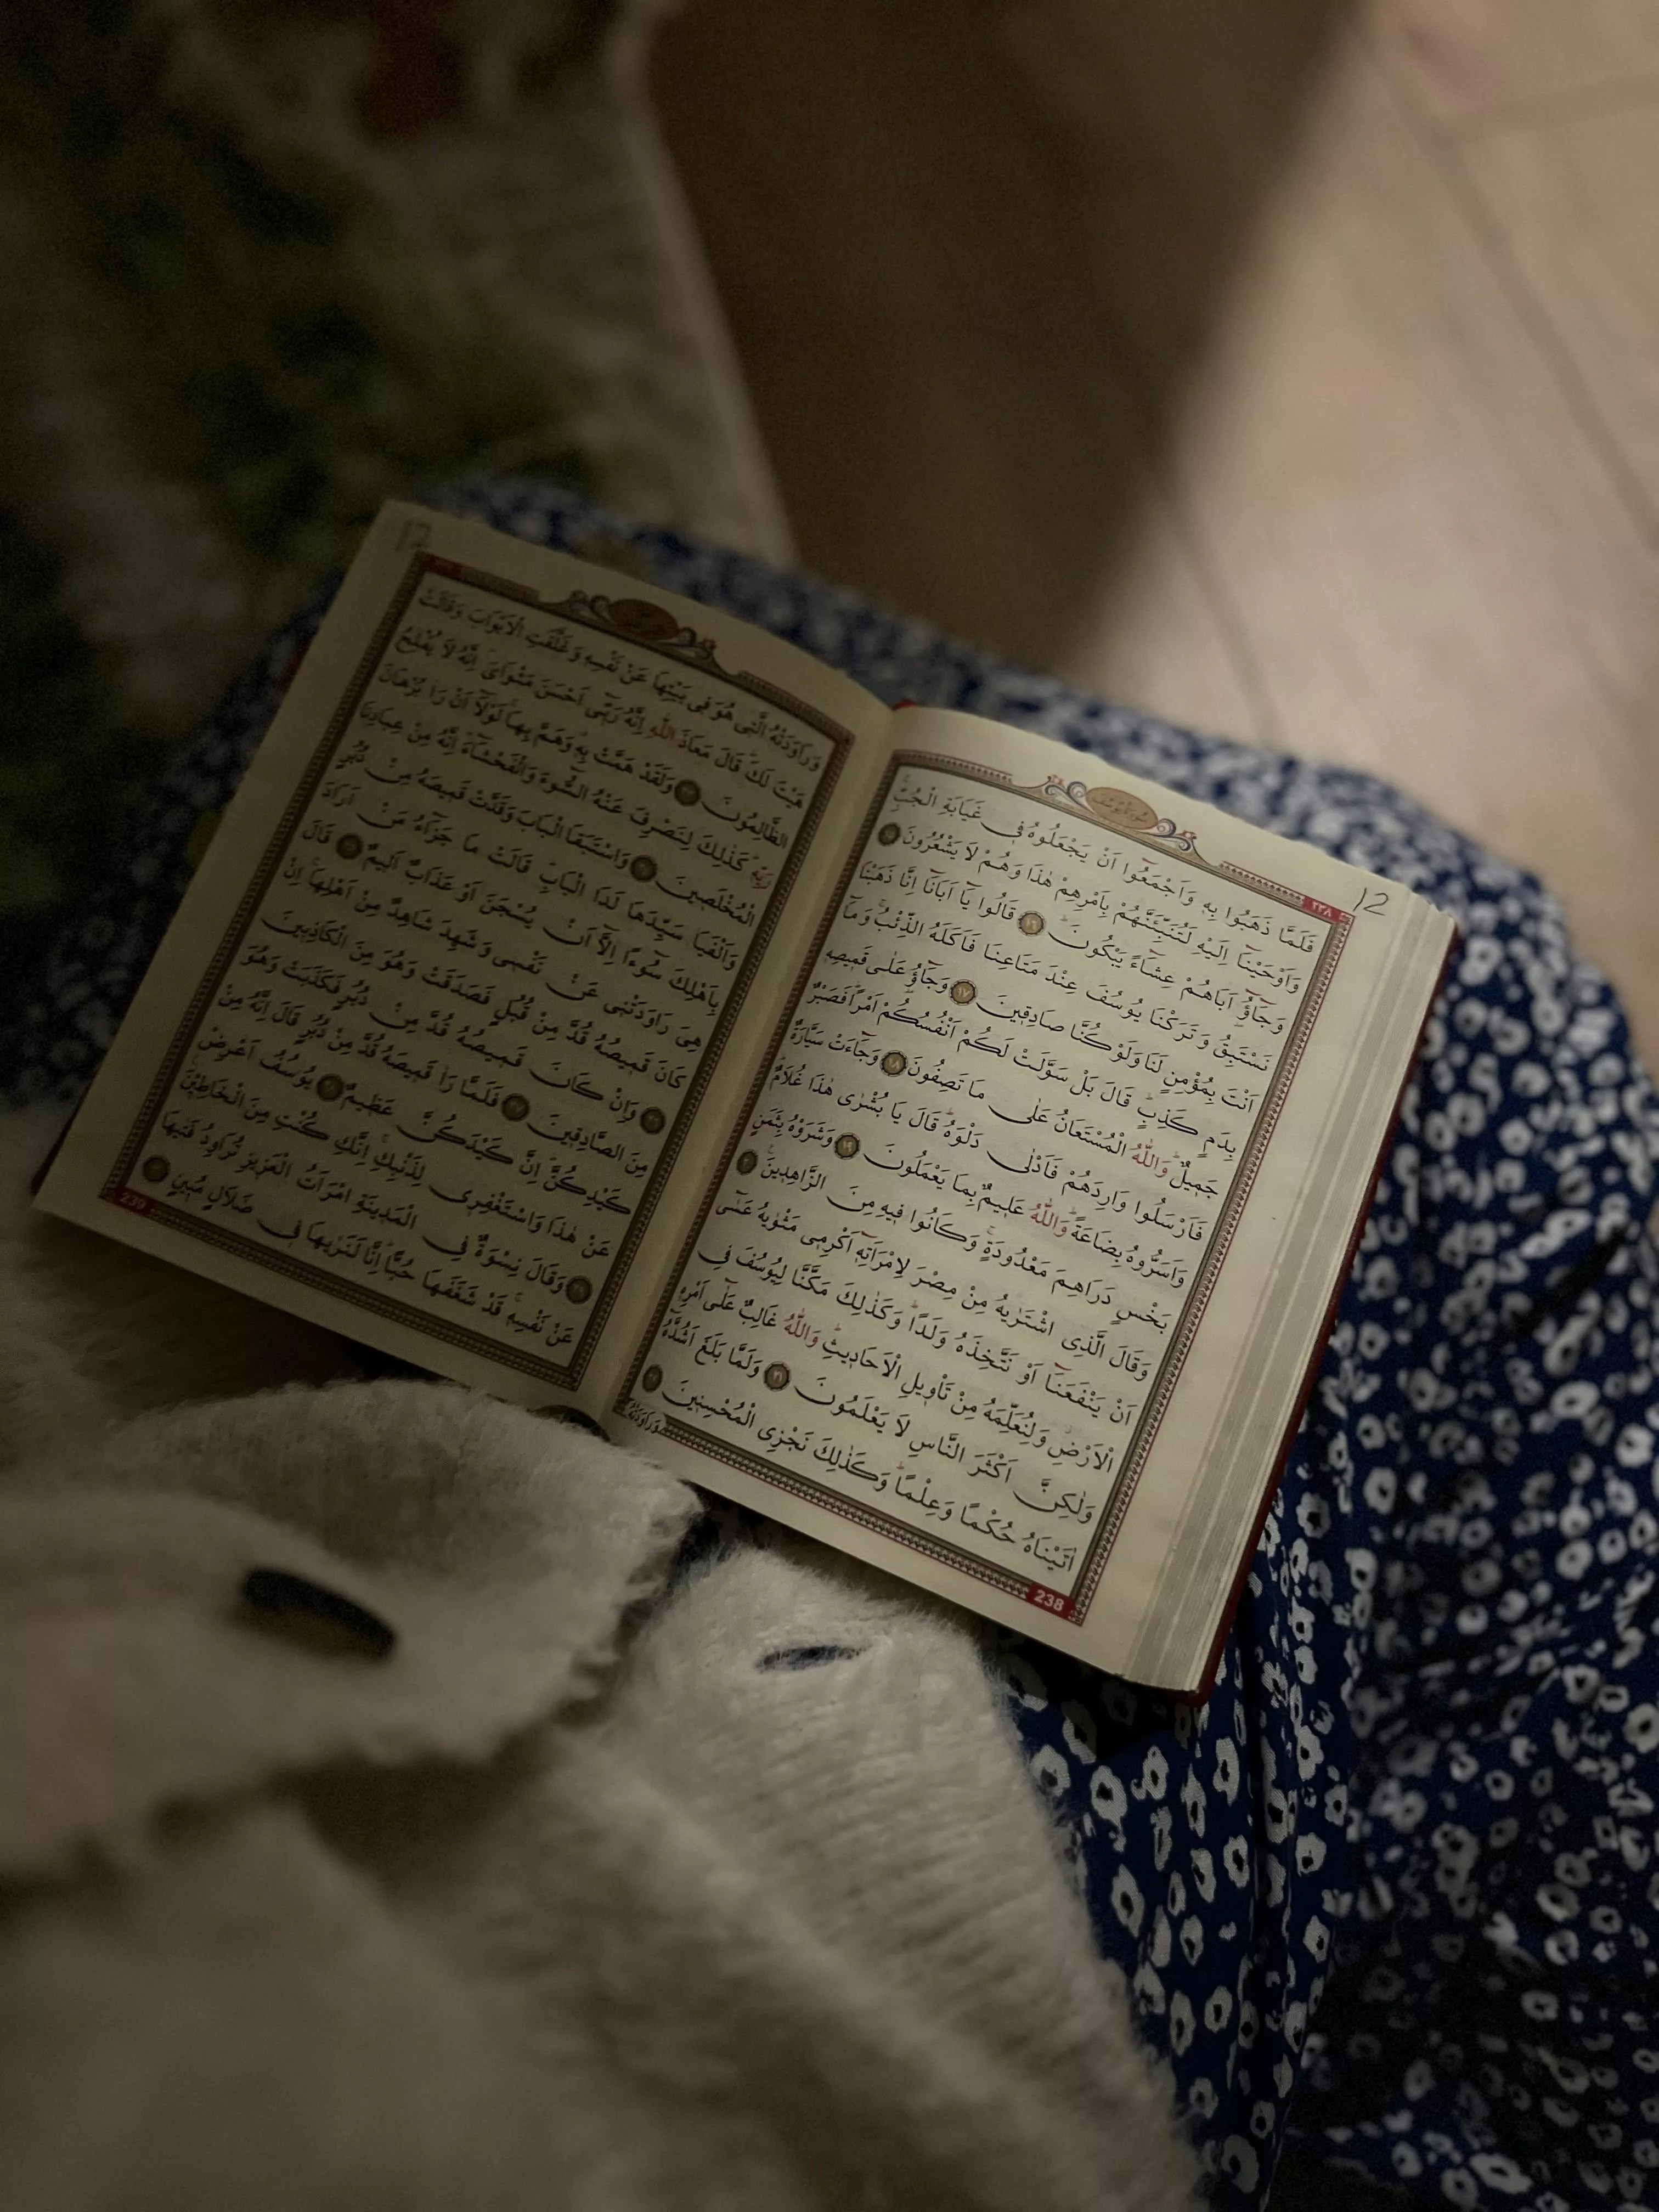 12
٢٣٨
سُورَةُ يُوسُفَ
فَلَمَّا ذَهَبُوا بِهٖ وَاَجْمَعُٓوا اَنْ يَجْعَلُوهُ فٖى غَيَابَةِ الْجُبِّۚ
وَاَوْحَيْنَٓا اِلَيْهِ لَتُنَبِّئَنَّهُمْ بِاَمْرِهِمْ هٰذَا وَهُمْ لَا يَشْعُرُونَ ١٥
وَجَٓاؤُٓ اَبَاهُمْ عِشَٓاءً يَبْكُونَؕ ١٦ قَالُوا يَٓا اَبَانَٓا اِنَّا ذَهَبْنَا
نَسْتَبِقُ وَتَرَكْنَا يُوسُفَ عِنْدَ مَتَاعِنَا فَاَكَلَهُ الذِّئْبُۚ وَمَٓا
اَنْتَ بِمُؤْمِنٍ لَنَا وَلَوْ كُنَّا صَادِقٖينَ ١٧ وَجَٓاؤُ عَلٰى قَمٖيصِهٖ
بِدَمٍ كَذِبٍؕ قَالَ بَلْ سَوَّلَتْ لَكُمْ اَنْفُسُكُمْ اَمْرًاؕ فَصَبْرٌ
جَمٖيلٌؕ وَاللّٰهُ الْمُسْتَعَانُ عَلٰى مَا تَصِفُونَ ١٨ وَجَٓاءَتْ سَيَّارَةٌ
فَاَرْسَلُوا وَارِدَهُمْ فَاَدْلٰى دَلْوَهُؕ قَالَ يَا بُشْرٰى هٰذَا غُلَامٌؕ
وَاَسَرُّوهُ بِضَاعَةًؕ وَاللّٰهُ عَلٖيمٌ بِمَا يَعْمَلُونَ ١٩ وَشَرَوْهُ بِثَمَنٍ
بَخْسٍ دَرَاهِمَ مَعْدُودَةٍۚ وَكَانُوا فٖيهِ مِنَ الزَّاهِدٖينَ ٢٠
وَقَالَ الَّذِى اشْتَرٰيهُ مِنْ مِصْرَ لِامْرَاَتِهٖٓ اَكْرِمٖى مَثْوٰيهُ عَسٰٓى
اَنْ يَنْفَعَنَٓا اَوْ نَتَّخِذَهُ وَلَدًاؕ وَكَذٰلِكَ مَكَّنَّا لِيُوسُفَ فِى
الْاَرْضِ وَلِنُعَلِّمَهُ مِنْ تَاْوٖيلِ الْاَحَادٖيثِؕ وَاللّٰهُ غَالِبٌ عَلٰٓى اَمْرِهٖ
وَلٰكِنَّ اَكْثَرَ النَّاسِ لَا يَعْلَمُونَ ٢١ وَلَمَّا بَلَغَ اَشُدَّهُٓ
اٰتَيْنَاهُ حُكْمًا وَعِلْمًاؕ وَكَذٰلِكَ نَجْزِى الْمُحْسِنٖينَ ٢٢
وَرَاوَدَتْهُ
238
12
وَرَاوَدَتْهُ الَّتٖى هُوَ فٖى بَيْتِهَا عَنْ نَفْسِهٖ وَغَلَّقَتِ الْاَبْوَابَ وَقَالَتْ
هَيْتَ لَكَؕ قَالَ مَعَاذَ اللّٰهِ اِنَّهُ رَبّٖٓى اَحْسَنَ مَثْوَاىَؕ اِنَّهُ لَا يُفْلِحُ
الظَّالِمُونَ ٢٣ وَلَقَدْ هَمَّتْ بِهٖۚ وَهَمَّ بِهَاۚ لَوْلَٓا اَنْ رَاٰ بُرْهَانَ
رَبِّهٖؕ كَذٰلِكَ لِنَصْرِفَ عَنْهُ السُّٓوءَ وَالْفَحْشَٓاءَؕ اِنَّهُ مِنْ عِبَادِنَا
الْمُخْلَصٖينَ ٢٤ وَاسْتَبَقَا الْبَابَ وَقَدَّتْ قَمٖيصَهُ مِنْ دُبُرٍ
وَاَلْفَيَا سَيِّدَهَا لَدَا الْبَابِؕ قَالَتْ مَا جَزَٓاءُ مَنْ اَرَادَ
بِاَهْلِكَ سُٓوءًا اِلَّٓا اَنْ يُسْجَنَ اَوْ عَذَابٌ اَلٖيمٌ ٢٥ قَالَ
هِىَ رَاوَدَتْنٖى عَنْ نَفْسٖى وَشَهِدَ شَاهِدٌ مِنْ اَهْلِهَاۚ اِنْ
كَانَ قَمٖيصُهُ قُدَّ مِنْ قُبُلٍ فَصَدَقَتْ وَهُوَ مِنَ الْكَاذِبٖينَ
٢٦ وَاِنْ كَانَ قَمٖيصُهُ قُدَّ مِنْ دُبُرٍ فَكَذَبَتْ وَهُوَ
مِنَ الصَّادِقٖينَ ٢٧ فَلَمَّا رَاٰ قَمٖيصَهُ قُدَّ مِنْ دُبُرٍ قَالَ اِنَّهُ مِنْ
كَيْدِكُنَّؕ اِنَّ كَيْدَكُنَّ عَظٖيمٌ ٢٨ يُوسُفُ اَعْرِضْ
عَنْ هٰذَا وَاسْتَغْفِرٖى لِذَنْبِكِۚ اِنَّكِ كُنْتِ مِنَ الْخَاطِپٖٔنَ
٢٩ وَقَالَ نِسْوَةٌ فِى الْمَدٖينَةِ امْرَاَتُ الْعَزٖيزِ تُرَاوِدُ فَتٰيهَا
عَنْ نَفْسِهٖۚ قَدْ شَغَفَهَا حُبًّاؕ اِنَّا لَنَرٰيهَا فٖى ضَلَالٍ مُبٖينٍ ٣٠
239